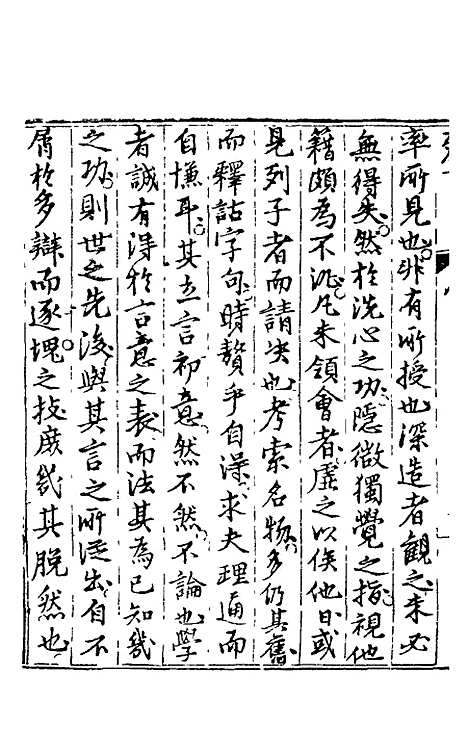 率所見也非有所授也深造者觀之未必
無得失然於洗心之功隱微獨覺之指視他
籍頗為不泥凡未領會者虛之以俟他日或
見列子者而請决也考索名物多仍其舊
而釋詁字句時贅乎自澡求夫理通而
自慊耳其立言初意然不然不論也學
者誠有得於言意之表而法其為己知幾
之功則世之先後與其言之所從出自不
屑於多辯而逐塊之技庶幾其脫然也